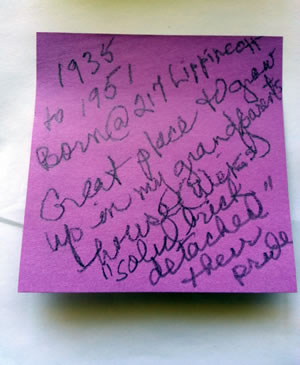 1935
to 1951
Born @ 217 Lippincott
Great place to grow
up in my grandparents
house
"solid brick
detached"
their
pride